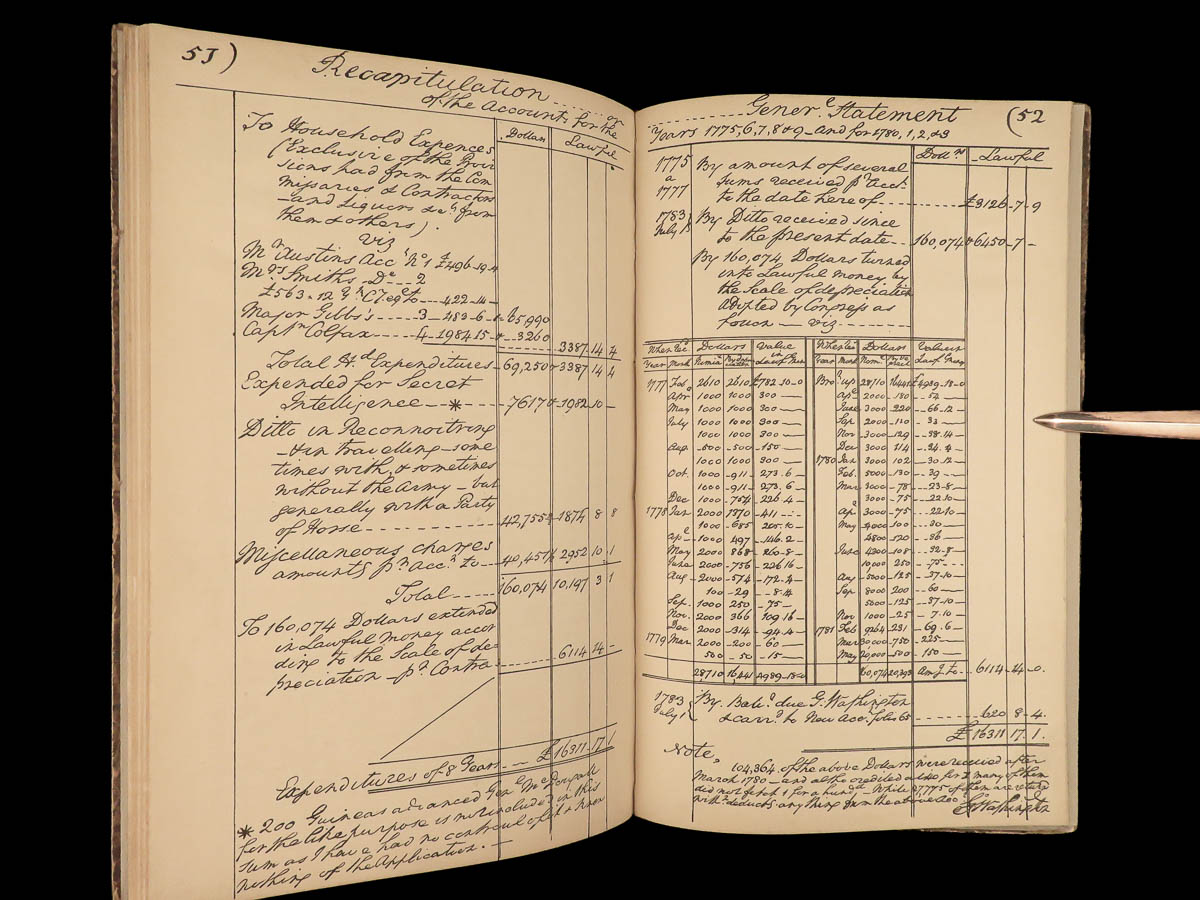 51)
Recapitulation ..... or
of the Accounts for the
Dollars Lawful
To Household Expences
(Exclusive of the Provi
sions had from the Com
missaries & Contractors
- and Liquors &ca. from
them & others).
Viz
Mr Austins Acct No 1 £496-19-
Mrs Smiths - Do - 2
£563-12 422-14-
Major Gibbs's - 3 - 483-6 - & 65,990
Captn Colfax - 4 - 1984 15 - & 3260
3387 14 4
Total Hd Expenditures - 69,250 & 3387 14 4
Expended for Secret
Intelligence - * - 7617 & 1982 10 -
Ditto in Reconnoitring
- & in travelling - some
times with, & sometimes
without the Army - but
generally with a Party
of Horse - 42,755 & 1874 8 8
Miscellaneous charges
amounts pr Acct to - 40,451 & 2952 10 1
Total - 160,074 10,197 3 1
To 160,074 Dollars extended
in Lawful money accor
ding to the Scale of de-
preciation - pr Contra 6114 14 -
Expenditures of 8 Years - £16311 17 1
* 200 Guineas advanced Genl McDougall
for the like purpose is not included in this
sum as I have had no controul of it & know
nothing of the Application. -
Generl Statement (52
Years 1775, 6, 7, 8 & 9 - And for 1780, 1, 2, & 3
Dollrs Lawful
1775
a
1777
By amount of several
sums received pr Acct
to the date hereof - £3126-7-9
1783
July 1
By Ditto received since
to the present date - 160,074 & 6450-7-
By 160,074 Dollars turned
into Lawful money by
the Scale of depreciation
adopted by Congress as
follows - viz -
When Recd Dollars Value in When Recd Dollars Value in
Year Month Nominal Lawf. Mony Year Month Lawf. Mony
1777 Feb 2610 2610 £782-10-0 Brot up 28710 16441 £4989-18-0
Apr 1000 1000 300 Apl 2000 180 - 54
May 1000 1000 300 June 3000 220 - 66-12
July 1000 1000 300 Sep 2000 - 110 - 33
1000 1000 300 Nov 3000 - 129 - 38-14
Aug 500 - 500 - 150 Dec 3000 114 - 34-4
1000 1000 300 1780 Jan 3000 102 - 30-12
Oct 1000 - 911 - 273-6 Feb 5000 - 130 - 39
1000 - 911 - 273-6 Mar 3000 - 78 - 23-8
Dec 1000 - 754 - 226-4 3000 - 75 - 22-10
1778 Jan 2000 1370 - 411 Ap 3000 - 75 - 22-10
1000 - 685 205-10 May 4000 100 - 30
Apl 1000 497 - 146-2 4800 - 120 - 36
May 2000 868 - 260-8 June 4200 - 108 - 32-8
June 2000 - 756 - 226 16 10,000 250 - 75
Aug 2000 - 574 - 172-4 Aug 5000 - 125 - 37-10
100 - 29 - 8-14 Sep 8000 200 - 60
Sep 1000 250 - 75 5000 - 125 - 37-10
Nov 2000 366 109 16 Nov 1000 - 25 - 7-10
Dec 2000 - 314 - 94-4 1781 Feb 9264 231 - 69-6
1779 Mar 2000 - 200 - 60 Mar 30000 - 750 - 225
500 - 50 - 15 May 20,000 - 500 - 150
28,710 16,441 4989-18-0 160,074 20,393 Amg to 6114-14-0
1783
July 1
By Balce due G. Washington
& carrd to New Acct folio 65 - 620 8-4
£16311 17 1
Note,
104,364 of the above Dollars were received after
March 1780 - and altho credited
did not fetch 1 for a hundd - While 27,775 of them are returd
withl deducting any thing from the above acc
G. Washington